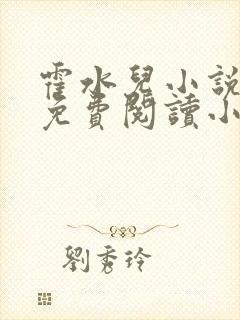 霍水兒小說
免費閱讀小
劉秀玲